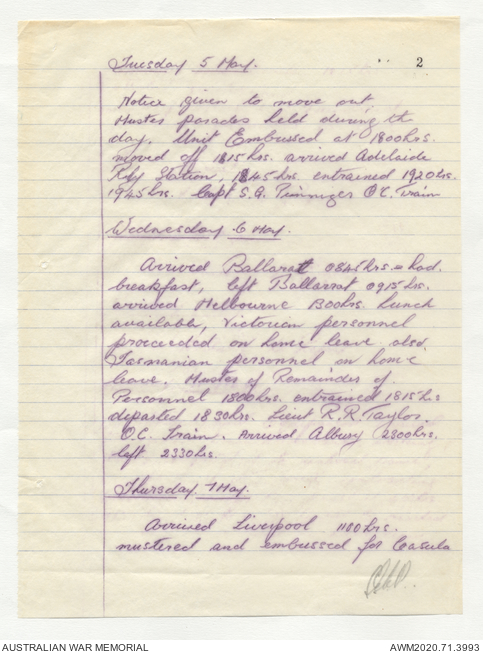 Tuesday 5 May.
2
Notice given to move out,
Muster parades held during the
day. Unit Embussed at 1800hrs.
moved off 1815hrs. arrived Adelaide
Rly Station, 1845hrs. entrained 1920hrs.
1945hrs. Capt S.G. O.C. Train
Wednesday 6 May.
Arrived Ballarat 0845hrs = had.
breakfast, left Ballarat 0915hrs.
arrived Melbourne 1300hrs. Lunch
available, Victorian personnel
proceeded on home leave also.
Tasmanian personnel on home
leave. Muster of Remainder of
Personnel 1800hrs. entrained 1815hrs
departed 1830hrs. Lieut R.R. Taylor.
O.C. Train. Arrived Albury 2300hrs.
left 2330hrs.
Thursday 7 May.
Arrived Liverpool 1100hrs.
mustered and embussed for Casula
AUSTRALIAN WAR MEMORIAL
AWM2020.71.3993